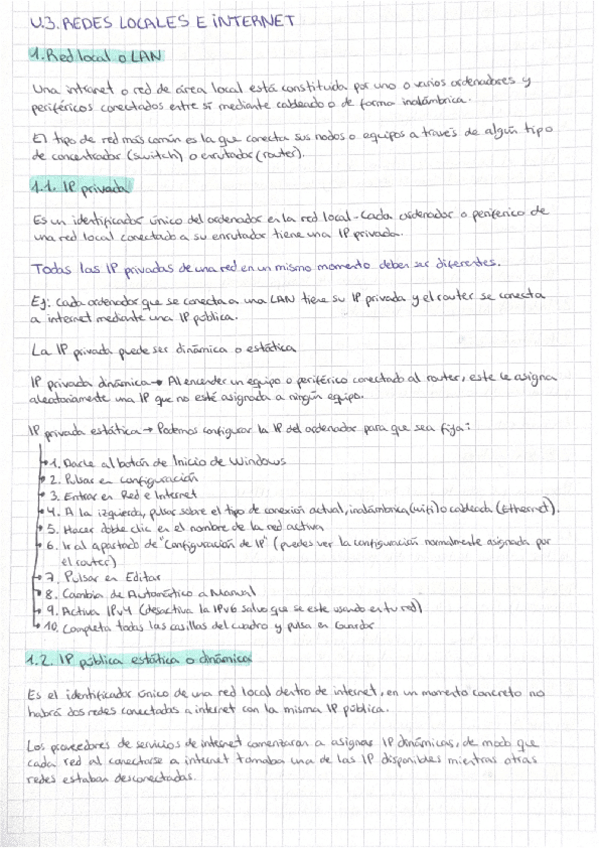 U.3. REDES LOCALES E INTERNET
1. Red local o LAN
Una intranet o red de área local está constituida por uno o varios ordenadores y
periféricos conectados entre sí mediante cableado o de forma inalámbrica.
El tipo de red más común es la que conecta sus nodos o equipos a través de algún tipo
de concentrador (switch) o enrutador (router).
1.1. IP privada
Es un identificador único del ordenador en la red local. Cada ordenador o periferico de
una red local conectado a su enrutador tiene una IP privada.
Todas las IP privadas de una red en un mismo momento deben ser diferentes.
Ej: Cada ordenador que se conecta a una LAN tiene su IP privada y el router se conecta
a internet mediante una IP pública.
La IP privada puede ser dinámica o estática
IP privada dinámica → Al encender un equipo o periférico conectado al router, este le asigna
aleatoriamente una IP que no esté asignada a ningún equipo.
IP privada estática → Podemos configurar la IP del ordenador para que sea fija:
1. Darle al botón de Inicio de Windows
2. Pulsar en configuración
3. Entrar en Red e Internet
4. A la izquierda, pulsar sobre el tipo de conexión actual, inalámbrica (wifi) o cableada (Ethernet).
5. Hacer doble clic en el nombre de la red activa
6. Ir al apartado de "Configuración de IP" (puedes ver la configuración normalmente asignada por
el router)
7. Pulsar en Editar
8. Cambia de Automático a Manual
9. Activa IPv4 (desactiva la IPv6 salvo que se este usando en tu red)
10. Completa todas las casillas del cuadro y pulsa en Guardar
1.2. IP pública estática o dinámica
Es el identificador único de una red local dentro de internet, en un momento concreto no
habrá dos redes conectadas a internet con la misma IP pública.
Los proveedores de servicios de internet comenzaron a asignar IP dinámicas, de modo que
cada red al conectarse a internet tomaba una de las IP disponibles mientras otras
redes estaban desconectadas.